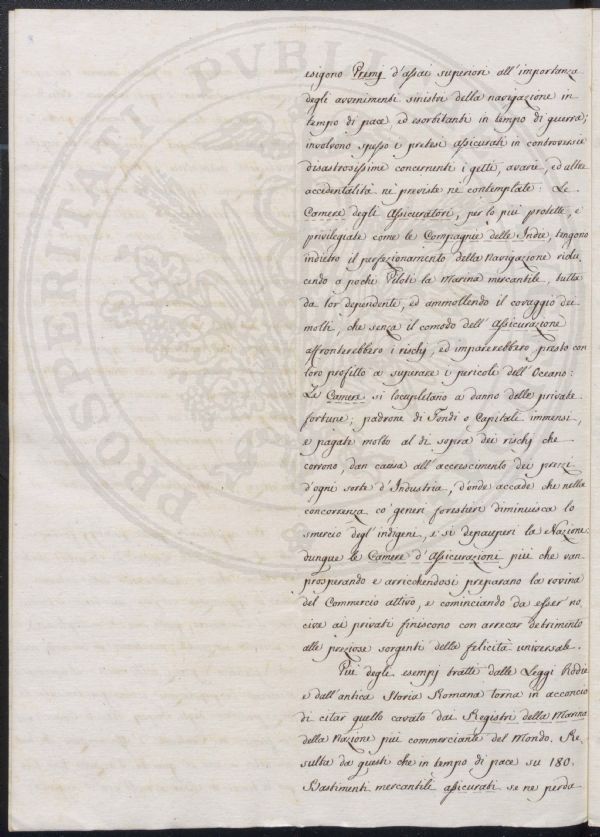 PROSPERITATI PVBLI
esigono Premj d'assai superiori all'importanza
degli avvenimenti sinistri della navigazione in
tempo di pace, ed esorbitanti in tempo di guerra;
involvono spesso i pretesi assicurati in controversie
disastrosissime concernenti i getti, avarie, ed altre
accidentalità nè previste nè contemplate: Le
Camere degli Assicuratori, per lo più protette, e
privilegiate come le Compagnie delle Indie, tengono
indietro il perfezionamento della Navigazione ridu,
cendo a pochi Piloti la Marina mercantile, tutta
da lor dependente, ed ammollendo il coraggio dei
molti, che senza il comodo dell'Assicurazione
affronterebbero i rischj, ed imparerebbero presto con
loro profitto a superare i pericoli dell'Oceano:
Le Camere si locupletano a danno delle private
fortune; padrone di Fondi o Capitali immensi,
e pagate molto al di sopra dei rischj che
corrono, dan causa all'accrescimento dei prezzi
d'ogni sorte d'Industria, d'onde accade che nella
concorrenza co' generi forestieri diminuisca lo
smercio degl'indigeni, e si depauperi la Nazione:
dunque le Camere d'Assicurazioni più che van
prosperando e arricchendosi preparano la rovina
del Commercio attivo, e cominciando da esser no,
cive ai privati finiscono con arrecar detrimento
alle preziose sorgenti della felicità universale.
Più degli esempj tratti dalle Leggi Rodie
e dall'antica Storia Romana torna in acconcio
di citar quello cavato dai Registri della Marina
della Nazione più commerciante del Mondo. Re,
sulta da questi che in tempo di pace su 180.
Bastimenti mercantili assicurati se ne perda